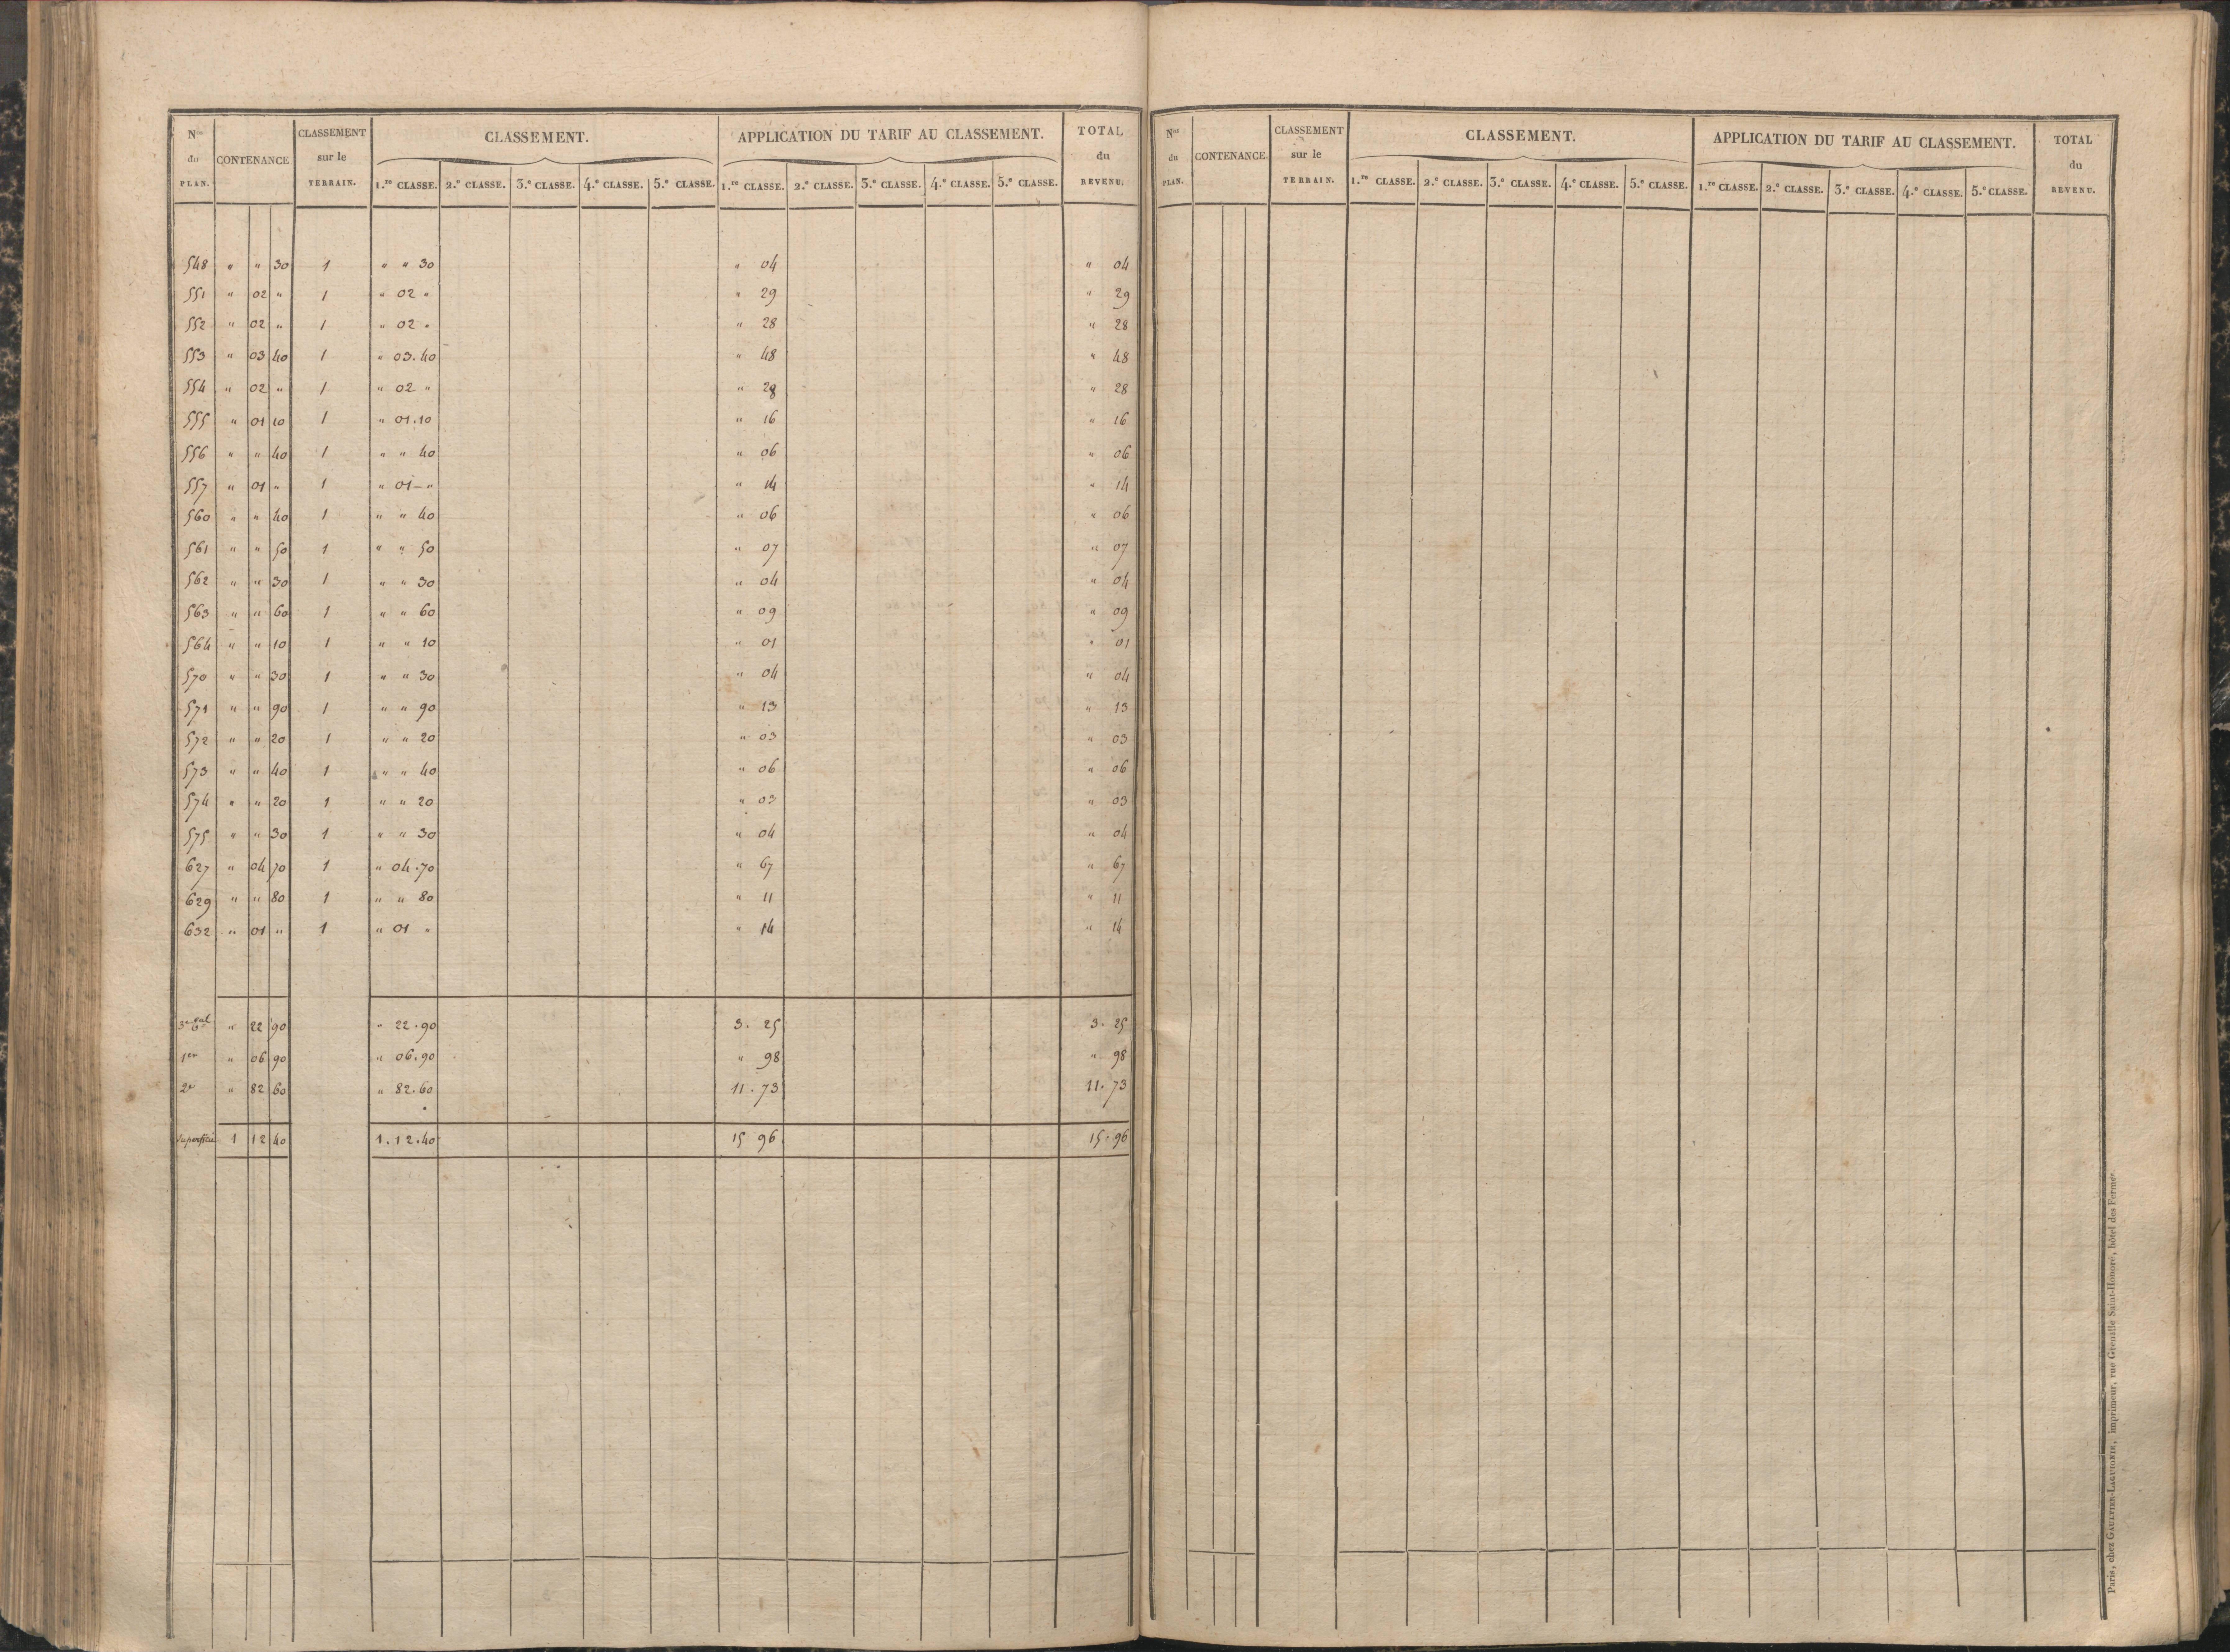 Nos du PLAN. CONTENANCE CLASSEMENT sur le TERRAIN. CLASSEMENT. APPLICATION DU TARIF AU CLASSEMENT. TOTAL du REVENU.
1.re CLASSE. 2.e CLASSE. 3.e CLASSE. 4.e CLASSE. 5.e CLASSE. 1.re CLASSE. 2.e CLASSE. 3.e CLASSE. 4.e CLASSE. 5.e CLASSE.
548 " " 30 1 " " 30 " 04 " 04
551 " 02 " 1 " 02 " " 29 " 29
552 " 02 " 1 " 02 " " 28 " 28
553 " 03 40 1 " 03.40 " 48 " 48
554 " 02 " 1 " 02 " " 28 " 28
555 " 01 10 1 " 01.10 " 16 " 16
556 " " 40 1 " " 40 " 06 " 06
557 " 01 " 1 " 01 – " " 14 " 14
560 " " 40 1 " " 40 " 06 " 06
561 " " 50 1 " " 50 " 07 " 07
562 " " 30 1 " " 30 " 04 " 04
563 " " 60 1 " " 60 " 09 " 09
564 " " 10 1 " " 10 " 01 " 01
570 " " 30 1 " " 30 " 04 " 04
571 " " 90 1 " " 90 " 13 " 13
572 " " 20 1 " " 20 " 03 " 03
573 " " 40 1 " " 40 " 06 " 06
574 " " 20 1 " " 20 " 03 " 03
575 " " 30 1 " " 30 " 04 " 04
627 " 04 70 1 " 04.70 " 67 " 67
629 " " 80 1 " " 80 " 11 " 11
632 " 01 " 1 " 01 " " 14 " 14
" 22 90 " 22.90 3. 25 3. 25
1er " 06 90 " 06.90 " 98 " 98
2e " 82 60 " 82.60 11.73 11.73
Superficie 1 12 40 1.12.40 15 96 15.96
Nos du PLAN. CONTENANCE. CLASSEMENT sur le TERRAIN. CLASSEMENT. APPLICATION DU TARIF AU CLASSEMENT. TOTAL du REVENU.
1.re CLASSE. 2.e CLASSE. 3.e CLASSE. 4.e CLASSE. 5.e CLASSE. 1.re CLASSE. 2.e CLASSE. 3.e CLASSE. 4.e CLASSE. 5.e CLASSE.
Paris, chez GAULTIER-LAGUIONIE, imprimeur, rue Grenelle Saint-Honoré, hôtel des Fermes.